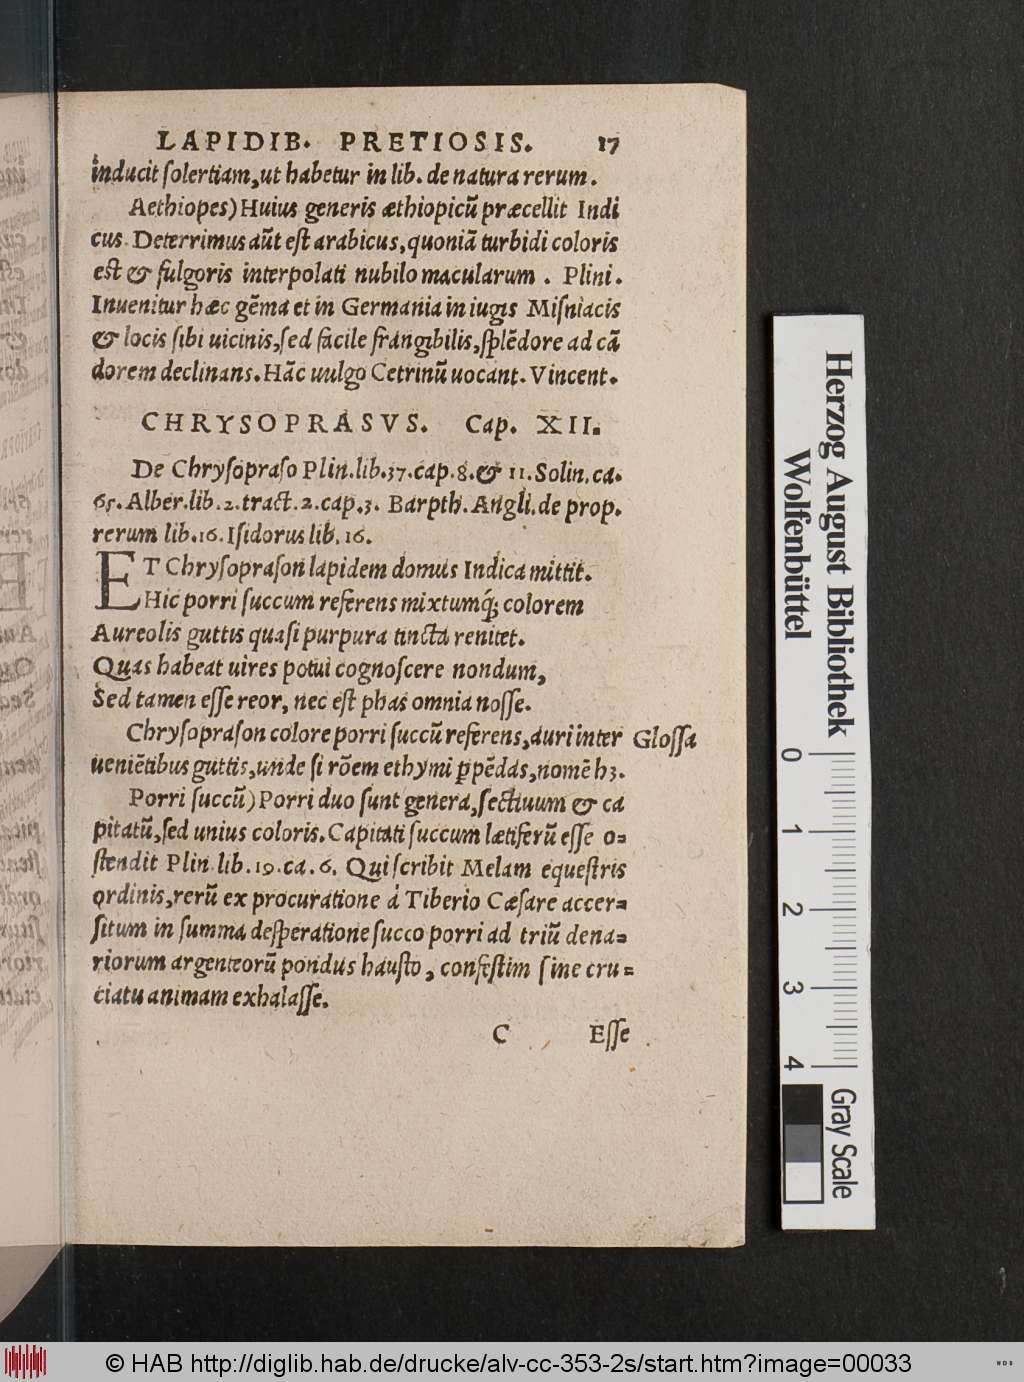 LAPIDIB. PRETIOSIS. 17
inducit ſolertiam, ut habetur in lib. de natura rerum.
Aethiopes) Huius generis æthiopicũ præcellit Indi
cus. Deterrimus aũt eſt arabicus, quoniã turbidi coloris
eſt & fulgoris interpolati nubilo macularum. Plini.
Inuenitur hæc gẽma et in Germania in iugis Miſniacis
& locis ſibi uicinis, ſed facile frangibilis, ſplẽdore ad cã
dorem declinans. Hãc uulgo Cetrinũ uocant. Vincent.
CHRYSOPRASVS. Cap. XII.
De Chryſopraſo Plin. lib. 37. cap. 8. & 11. Solin. ca.
65. Alber. lib. 2. tract. 2. cap. 3. Barpth. Angli. de prop.
rerum lib. 16. Iſidorus lib. 16.
ET Chryſopraſon lapidem domus Indica mittit.
Hic porri ſuccum referens mixtumq́; colorem
Aureolis guttis quaſi purpura tincta renitet.
Quas habeat uires potui cognoſcere nondum,
Sed tamen eſſe reor, nec eſt phas omnia noſſe.
Chryſopraſon colore porri ſuccũ referens, auri inter Gloſſa
ueniẽtibus guttis, unde ſi rõem ethymi ꝑpẽdas, nomẽ hȝ.
Porri ſuccũ) Porri duo ſunt genera, ſectiuum & ca
pitatũ, ſed unius coloris. Capitati ſuccum lætiferũ eſſe o=
ſtendit Plin. lib. 19. ca. 6. Qui ſcribit Melam equeſtris
ordinis, rerũ ex procuratione á Tiberio Cæſare accer=
ſitum in ſumma deſperatione ſucco porri ad triũ dena=
riorum argenteorũ pondus hauſto, confeſtim ſine cru=
ciatu animam exhalaſſe.
C Eſſe
Herzog August Bibliothek
Wolfenbüttel
0 1 2 3 4
Gray Scale
© HAB http://diglib.hab.de/drucke/alv-cc-353-2s/start.htm?image=00033